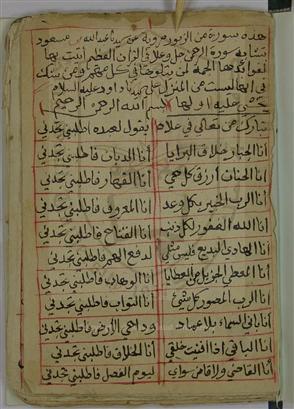 هذه سورة من الزبور مروية عن سيدنا عبد الله بن مسعود
تشابه سورة الرحمن جل وعلا في القران العظيم اتيت بها
لفوائدها الجمة لمن يتلوها في كل
انها ليست من المنزل على سيدنا داود عليه السلام
اولها بسم الله الرحمن الرحيم
تبارك من تعالى في علاه يقول لعبده اطلبني تجدني
انا الجبار خلاق البرايا انا الديان فاطلبني تجدني
انا الحنان ارزق كل حي انا القهار فاطلبني تجدني
انا الرب الخبير بكل وعد انا المعروف فاطلبني تجدني
انا الله الغفور لكل ذنب انا الفتاح فاطلبني تجدني
انا الهادي البديع فليس مثلي لدفع الهم فاطلبني تجدني
انا المعطي الجزيل من العطايا انا الوهاب فاطلبني تجدني
انا الرب المصور كل شيء انا التواب فاطلبني تجدني
انا باني السماء بلا عماد وداحي الارض فاطلبني تجدني
انا الباقي اذا افنيت خلقي انا الخلاق فاطلبني تجدني
انا القاضي ولا قاض سواي ليوم الفصل فاطلبني تجدني